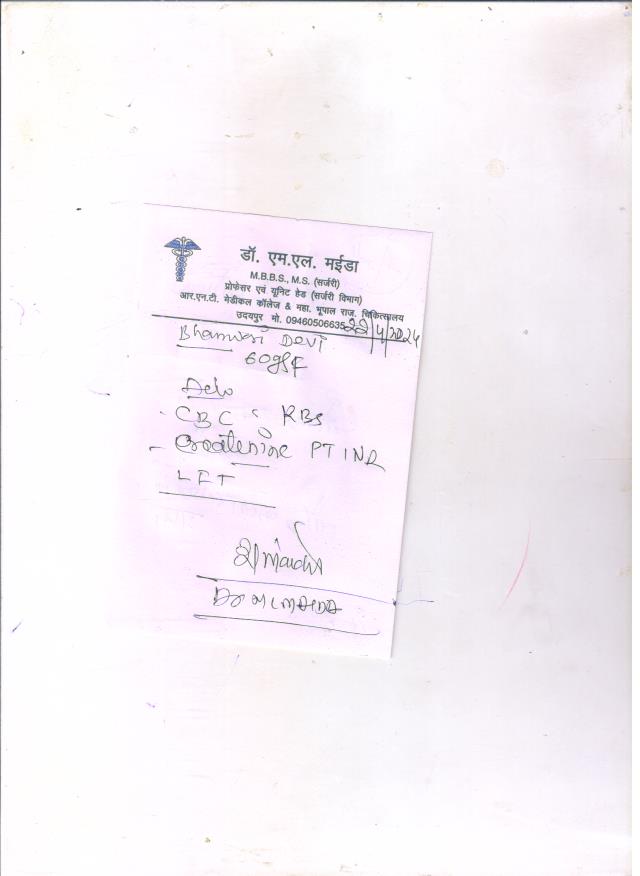 डॉ. एम.एल. मईडा
M.B.B.S., M.S. (सर्जरी)
प्रोफेसर एवं यूनिट हेड (सर्जरी विभाग)
आर.एन.टी. मेडीकल कॉलेज & महा. भूपाल राज. चिकित्सालय
उदयपुर मो. 09460506635 /4/2024
Bhanwari Devi
60yrs F
CBC RBS
Creatinine PT INR
LFT
Dr M L MAIDA